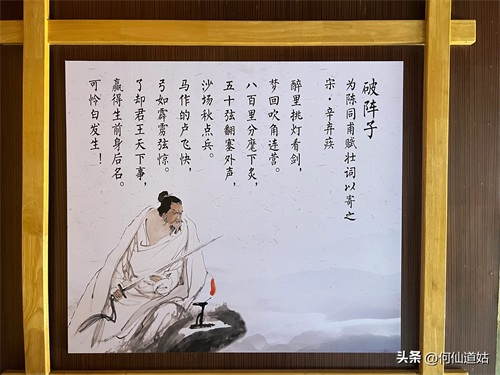 破阵子
为陈同甫赋壮词以寄之
宋·辛弃疾
醉里挑灯看剑，
梦回吹角连营。
八百里分麾下炙，
五十弦翻塞外声，
沙场秋点兵。
马作的卢飞快，
弓如霹雳弦惊。
了却君王天下事，
赢得生前身后名。
可怜白发生！
头条 @何仙道姑